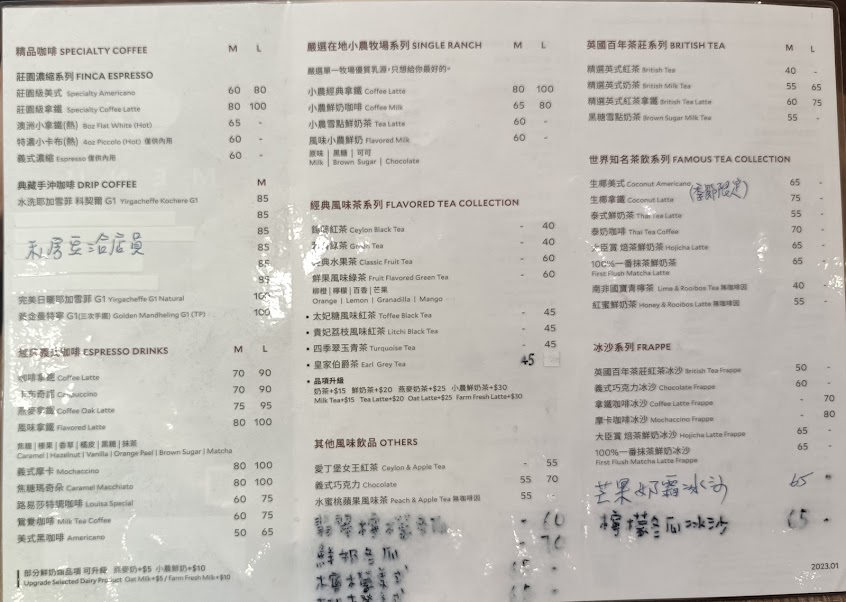 精品咖啡 SPECIALTY COFFEE M L
莊園濃縮系列 FINCA ESPRESSO
莊園級美式 Specialty Americano 60 80
莊園級拿鐵 Specialty Coffee Latte 80 100
澳洲小拿鐵(熱) 8oz Flat White (Hot) 65 -
特濃小卡布(熱) 4oz Piccolo (Hot) 僅供內用 60 -
義式濃縮 Espresso 僅供內用 60 -
典藏手沖咖啡 DRIP COFFEE M
水洗耶加雪菲 科契爾 G1 Yirgacheffe Kochere G1 85
85
85
私房豆洽店員 85
85
完美日曬耶加雪菲 G1 Yirgacheffe G1 Natural 100
黃金曼特寧 G1(三次手選) Golden Mandheling G1 (TP) 100
咖啡 ESPRESSO DRINKS M L
Coffee Latte 70 90
卡布奇諾 Cappuccino 70 90
燕麥拿鐵 Coffee Oak Latte 75 95
風味拿鐵 Flavored Latte 80 100
焦糖 | 榛果 | 香草 | 橘皮 | 黑糖 | 抹茶
Caramel | Hazelnut | Vanilla | Orange Peel | Brown Sugar | Matcha
義式摩卡 Mochaccino 80 100
焦糖瑪奇朵 Caramel Macchiato 80 100
路易莎特調咖啡 Louisa Special 60 75
鴛鴦咖啡 Milk Tea Coffee 60 75
美式黑咖啡 Americano 50 65
部分鮮奶類品項 可升餐 燕麥奶+$5 小農鮮奶+$10
Upgrade Selected Dairy Product Oat Milk+$5 / Farm Fresh Milk+$10
嚴選在地小農牧場系列 SINGLE RANCH M L
嚴選單一牧場優質乳源，只想給你最好的。
小農經典拿鐵 Coffee Latte 80 100
小農鮮奶咖啡 Coffee Milk 65 80
小農雪點鮮奶茶 Tea Latte 60 -
風味小農鮮奶 Flavored Milk 60 -
原味 | 黑糖 | 可可
Milk | Brown Sugar | Chocolate
經典風味茶系列 FLAVORED TEA COLLECTION
紅茶 Ceylon Black Tea - 40
綠茶 Green Tea - 40
經典水果茶 Classic Fruit Tea - 60
鮮果風味綠茶 Fruit Flavored Green Tea - 60
柳橙 | 檸檬 | 百香 | 芒果
Orange | Lemon | Granadilla | Mango
• 太妃糖風味紅茶 Toffee Black Tea - 45
• 貴妃荔枝風味紅茶 Litchi Black Tea - 45
• 四季翠玉青茶 Turquoise Tea - 45
• 皇家伯爵茶 Earl Grey Tea 45
• 品項升級
奶茶+$15 鮮奶茶+$20 燕麥奶茶+$25 小農鮮奶茶+$30
Milk Tea+$15 Tea Latte+$20 Oat Latte+$25 Farm Fresh Latte+$30
其他風味飲品 OTHERS
愛丁堡女王紅茶 Ceylon & Apple Tea - 55
義式巧克力 Chocolate 55 70
水蜜桃蘋果風味茶 Peach & Apple Tea 無咖啡因 55 -
翡翠檸檬 - 60
鮮奶冬瓜 - 70
檸檬美式
英國百年茶莊系列 BRITISH TEA M L
精選英式紅茶 British Tea 40 -
精選英式奶茶 British Milk Tea 55 65
精選英式紅茶拿鐵 British Tea Latte 60 75
黑糖雪點奶茶 Brown Sugar Milk Tea 55 -
世界知名茶飲系列 FAMOUS TEA COLLECTION
生椰美式 Coconut Americano 65 -
生椰拿鐵 Coconut Latte (季節限定) 75 -
泰式鮮奶茶 Thai Tea Latte 55 -
泰奶咖啡 Thai Tea Coffee 70 -
大臣賞 焙茶鮮奶茶 Hojicha Latte 65 -
100%一番抹茶鮮奶茶 65 -
First Flush Matcha Latte
南非國寶青檸茶 Lime & Rooibos Tea 無咖啡因 40 -
紅蜜鮮奶茶 Honey & Rooibos Latte 無咖啡因 55 -
冰沙系列 FRAPPE
英國百年茶莊紅茶冰沙 British Tea Frappe 50 -
義式巧克力冰沙 Chocolate Frappe 60 -
拿鐵咖啡冰沙 Coffee Latte Frappe - 70
摩卡咖啡冰沙 Mochaccino Frappe - 80
大臣賞 焙茶鮮奶冰沙 Hojicha Latte Frappe 65 -
100%一番抹茶鮮奶冰沙 65 -
First Flush Matcha Latte Frappe
芒果奶霜冰沙 65 -
檸檬冬瓜冰沙 65 -
2023.01